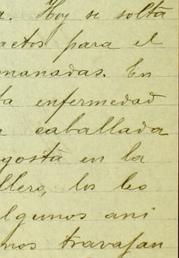 a. Hoy se solta
actos para el
manadas. En
ta enfermedad
a caballada
gosta en la
llero, los leo
lgunos ani
mos travajan